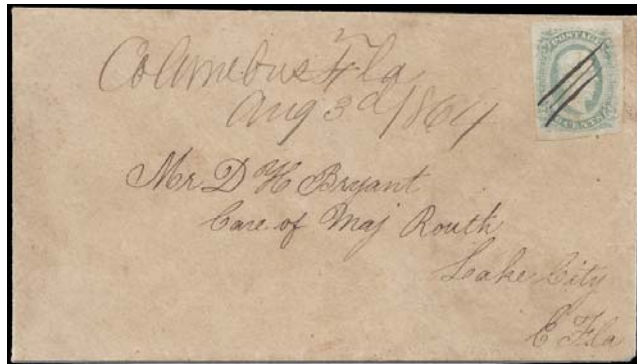 Columbus Fla
Aug 3d/1864
POSTAGE
Mr D H Bryant
Care of Maj Routh
Lake City
E Fla